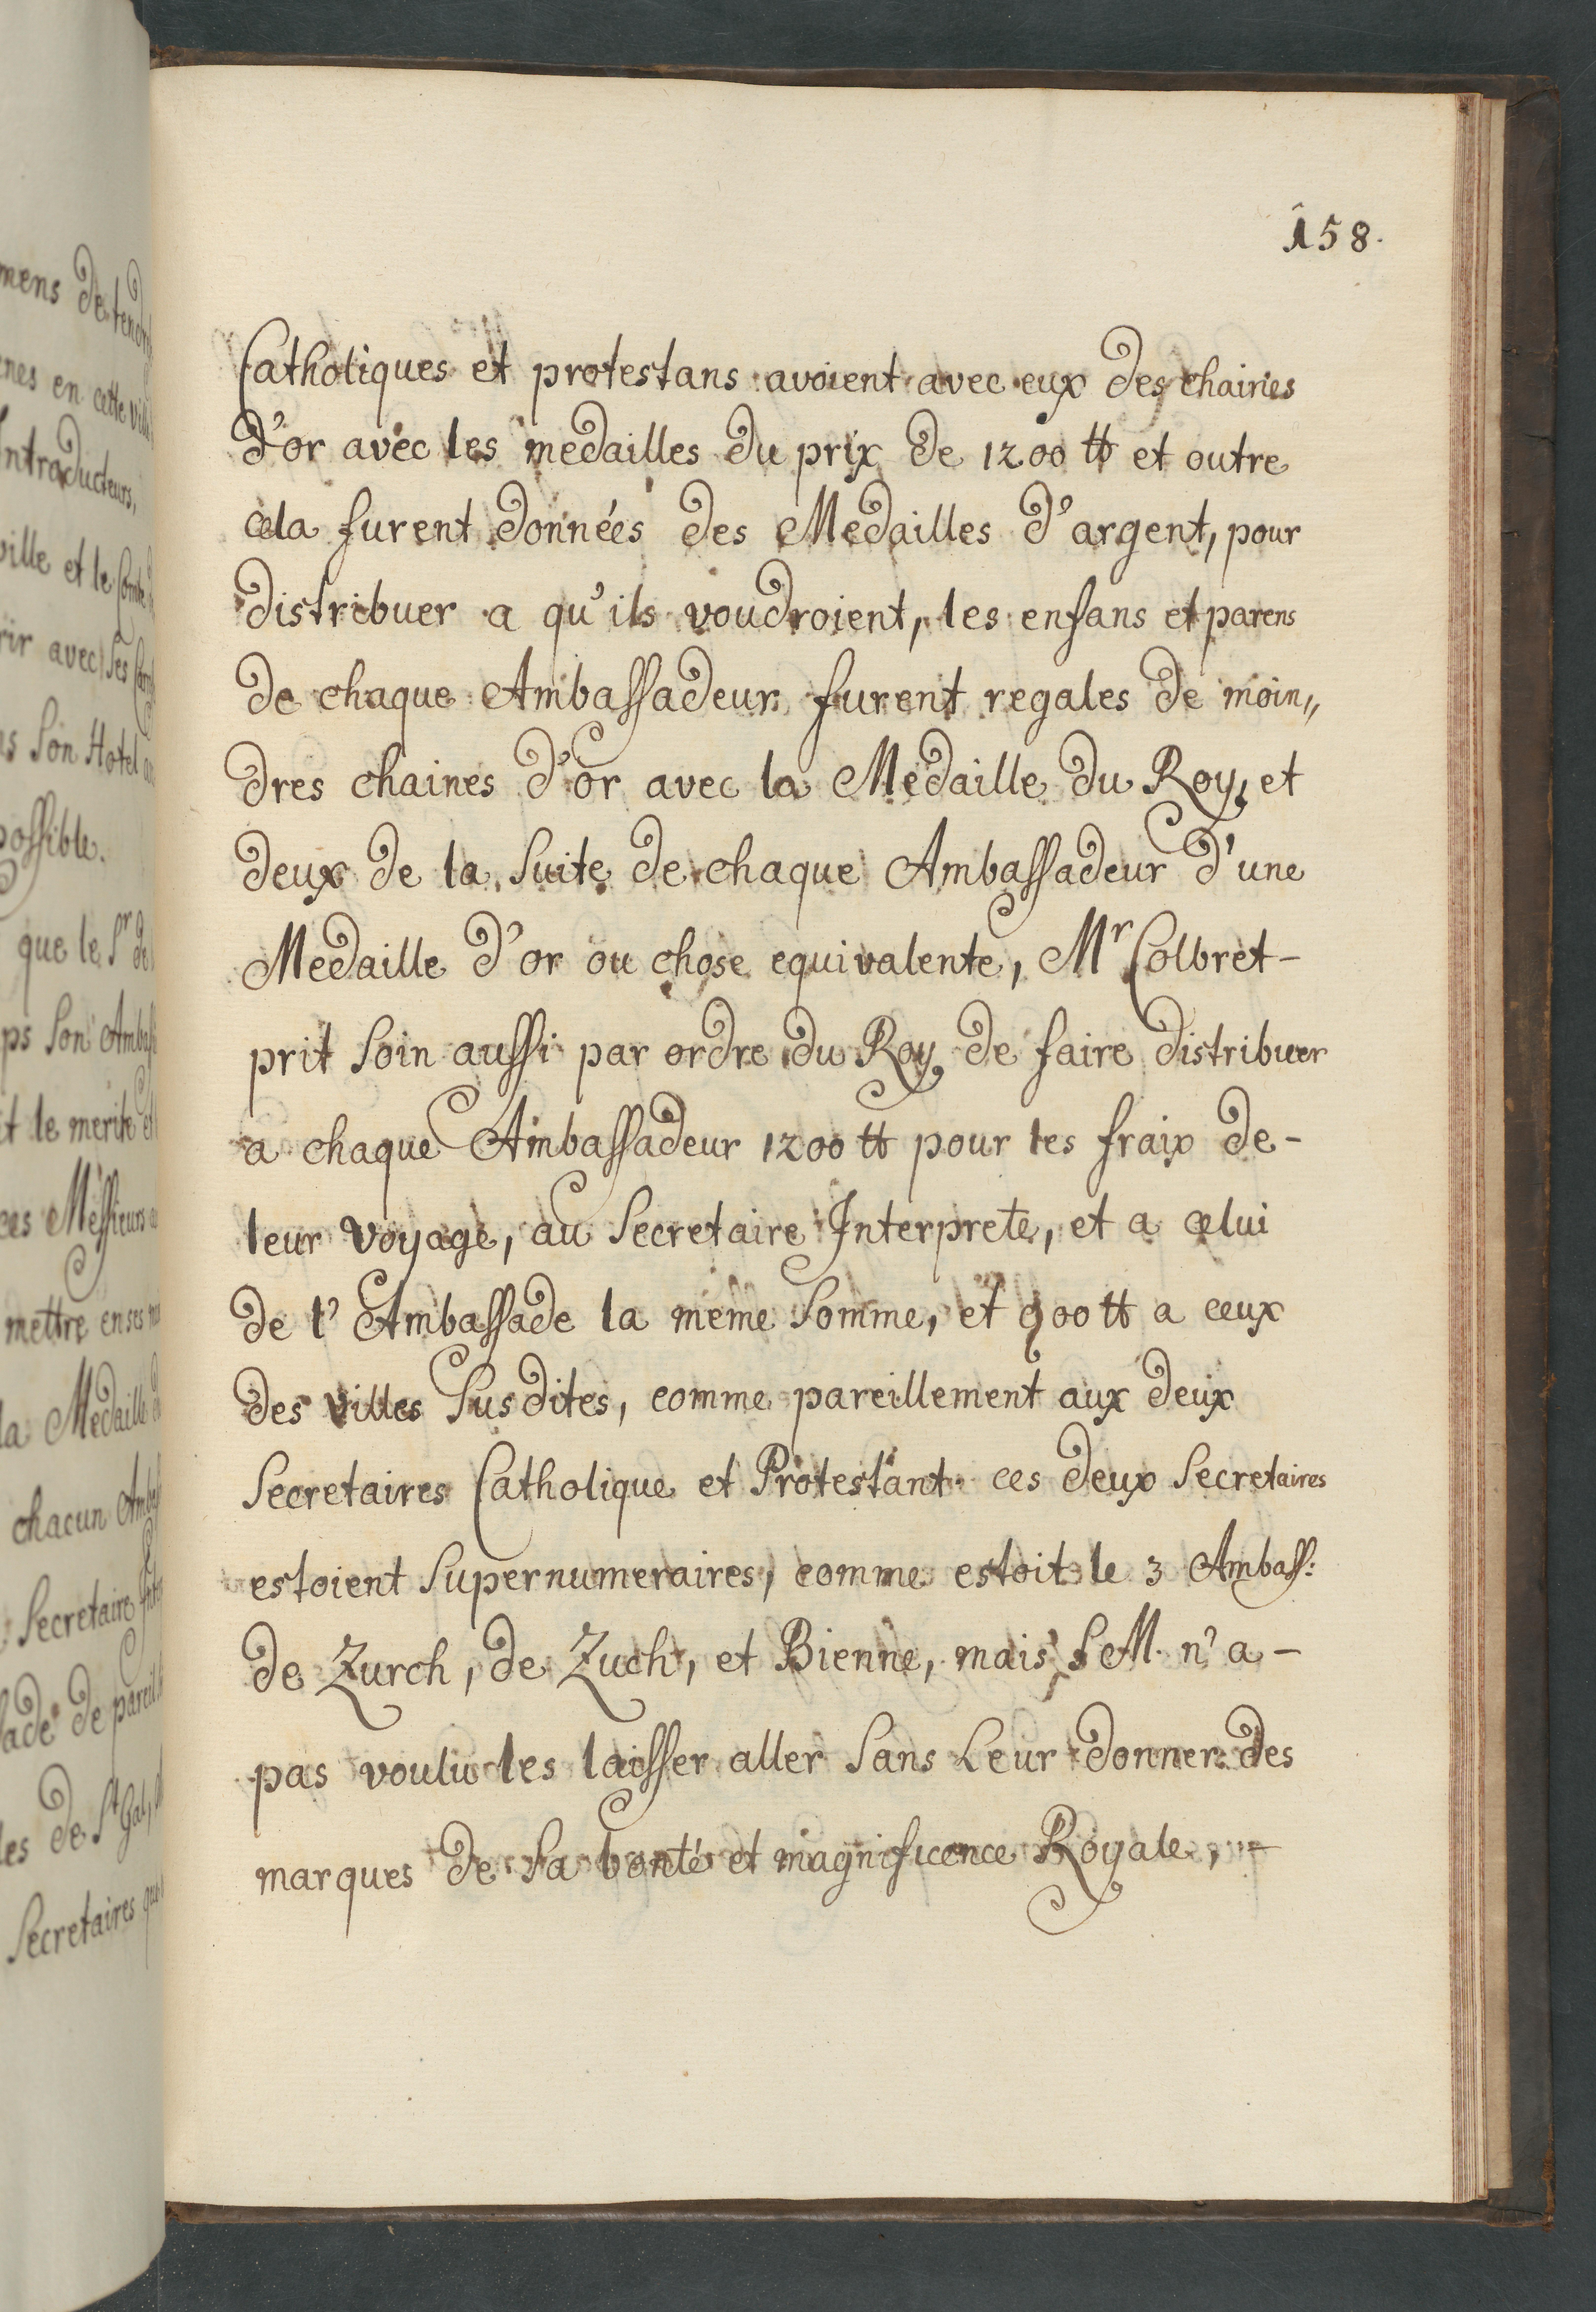 158.
Catholiques et protestans avoient avec eux des chairies
d'or avec les medailles du prix de 1200 ₶ et outre
cela furent données des Medailles d'argent, pour
distribuer a qu'ils voudroient, les enfans et parens
de chaque Ambassadeur furent regales de moin,,
dres chaines d'or avec la Medaille du Roy, et
deux de la Suite de chaque Ambassadeur d'une
Medaille d'or ou chose equivalente, Mr Colbret-
prit Soin aussi par ordre du Roy de faire distribuer
a chaque Ambassadeur 1200 ₶ pour les fraix de-
leur voyage, au Secretaire Interprete, et a celui
de l'Ambassade la meme Somme, et 900 ₶ a ceux
des villes Susdites, comme pareillement aux deux
Secretaires Catholique et Protestant ces deux Secretaires
estoient Supernumeraires, comme estoit le 3 Ambass:
de Zurch, de Zuch, et Bienne, mais S M. n'a -
pas voulu les laisser aller Sans Leur donner des
marques de Sa bonté et magnificence Royale, -
mens de
en cette
ntroducteurs,
ville et le
avec Ses
Son Hotel
possible.
que le Sr de
Son
le merite et
ces Messieurs
mettre en ses
la Medaille
chacun
Secretaire
de
de St Gal,
Secretaires